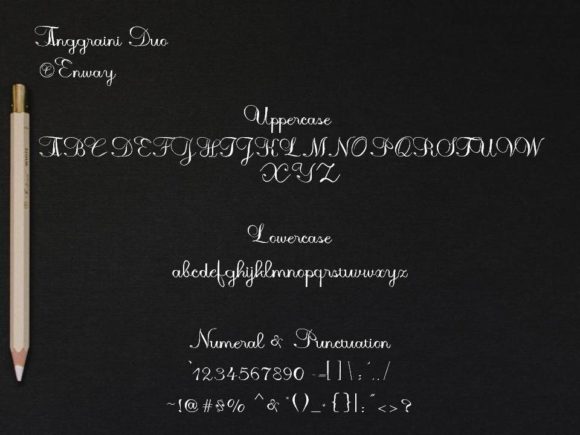 Anggraini Duo
©Enway
Uppercase
ABCDEFGHIJKLMNOPQRSTUVW
XYZ
Lowercase
abcdefghijklmnopqrstuvwxyz
Numeral & Punctuation
`1234567890 -=[]\;´../
~!@#$% ^&*()_+{}|:"<>?